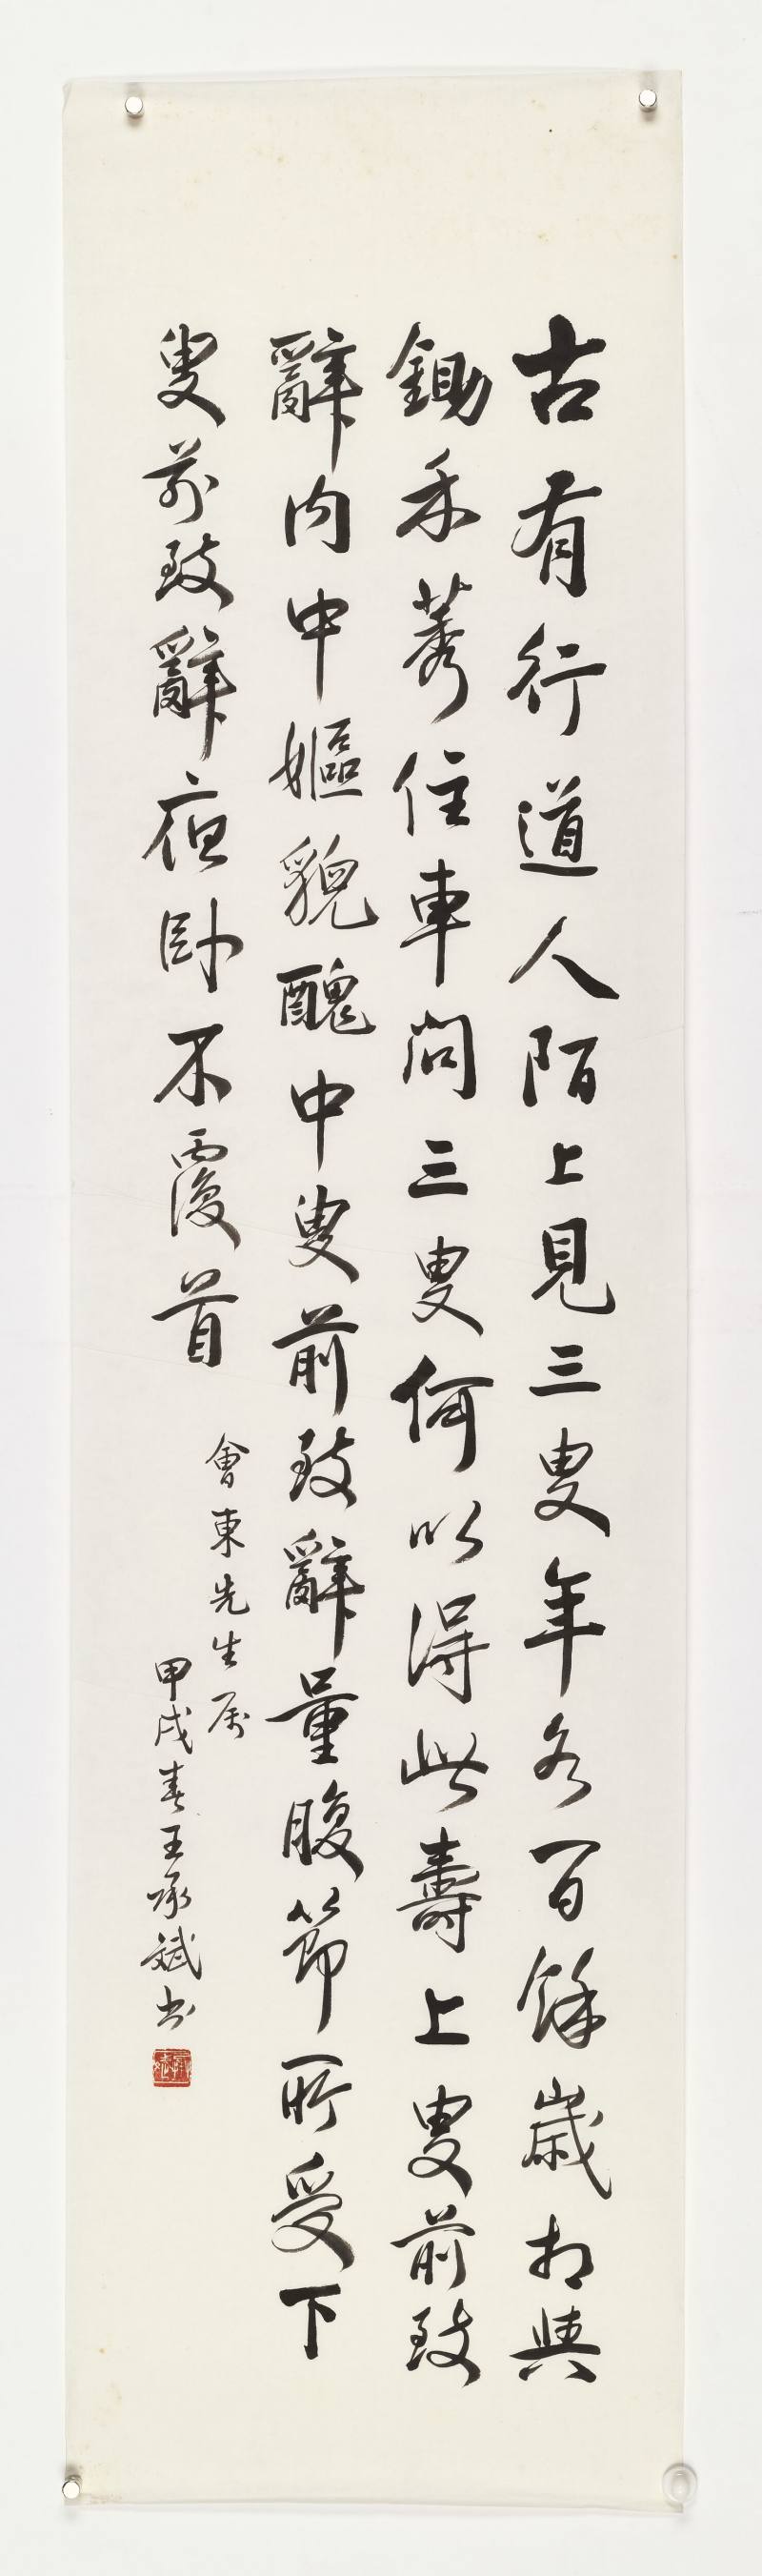 古有行道人陌上見三叟年各百餘歲相與
鋤禾莠住車問三叟何以得此壽上叟前致
辭內中嫗貌醜中叟前致辭量腹節所受下
叟前致辭夜臥不覆首
會東先生屬
甲戌春王承斌书